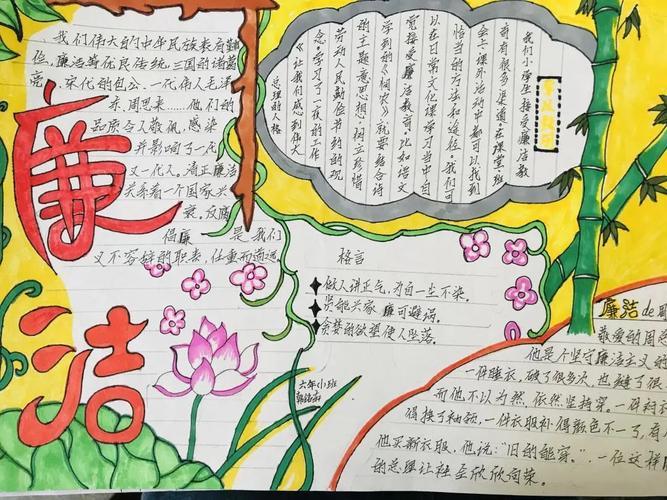 我们伟大的中华民族素有勤
俭、廉洁等优良传统，三国的诸葛
亮、宋代的包公、一代伟人毛泽
东、周恩来……他们的
品质令人敬佩，感染
并影响了一代
又一代人。清正廉洁
关系着一个国家兴
衰。反腐
倡廉是我们
义不容辞的职责，任重而道远
廉
洁
我们小学生接受廉洁教
育有很多渠道。在课堂、班
会上、课外活动中都可以找到
恰当的方法和途径。我们可
以在日常文化课学习当中自
觉接受廉洁教育。比如语文
学到的《悯农》就要结合诗
的主题意思想，树立珍惜
劳动人民勤俭节约的观
念。学习了《一夜的工作
》让我们感到伟大
总理的人格
格言
做人讲正气，为自一生不染。
贤能兴家 廉可避祸。
贪婪的欲望使人坠落。
六年(1)班
廉洁de
敬爱的周恩
他是个坚守廉洁主义的
一件睡衣，破了很多次，也
而他不以为然，依然坚持穿。一件衬
得换了袖领，一件衣服补得颜色不一了，有
他买新衣服，他说："旧的能穿。"一位这样
的总理让社会欣欣向荣。